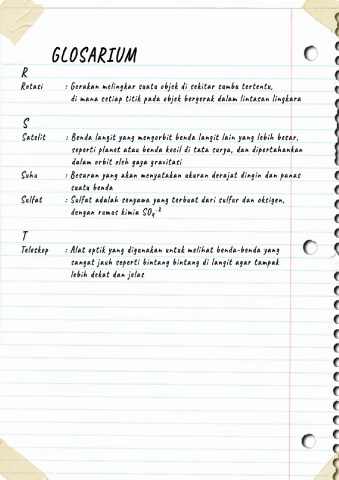 GLOSARIUM
R
Rotasi : Gerakan melingkar suatu objek di sekitar sumbu tertentu,
di mana setiap titik pada objek bergerak dalam lintasan lingkara
S
Satelit : Benda langit yang mengorbit benda langit lain yang lebih besar,
seperti planet atau benda kecil di tata surya, dan dipertahankan
dalam orbit oleh gaya gravitasi
Suhu : Besaran yang akan menyatakan ukuran derajat dingin dan panas
suatu benda
Sulfat : Sulfat adalah senyawa yang terbuat dari sulfur dan oksigen,
dengan rumus kimia SO₄⁻²
T
Teleskop : Alat optik yang digunakan untuk melihat benda-benda yang
sangat jauh seperti bintang bintang di langit agar tampak
lebih dekat dan jelas